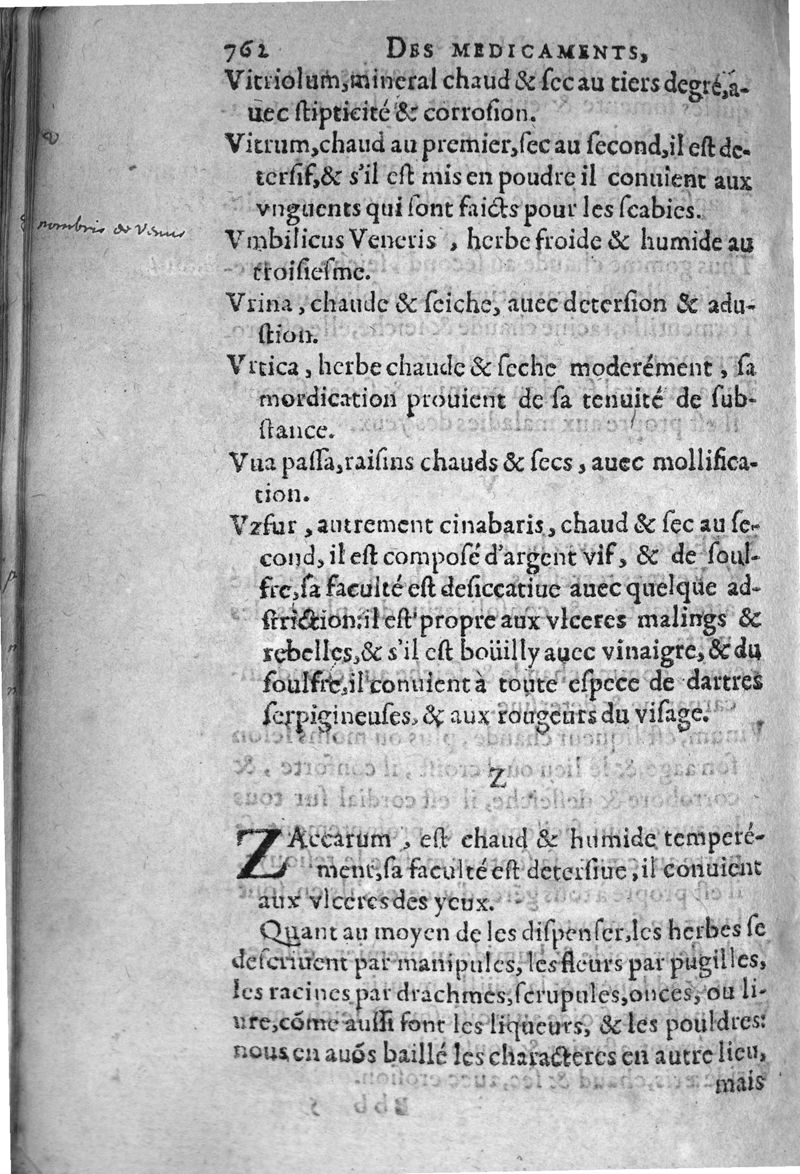 762 DES MEDICAMENTS,
Vitriolum, mineral chaud & ſec au tiers degré, a-
uec ſtipticité & corroſion.
Vitrum, chaud au premier, ſec au ſecond, il eſt de-
terſif, & s'il eſt mis en poudre il conuient aux
vnguents qui ſont faicts pour les ſcabies.
nombris de Venus
Vmbilicus Veneris , herbe froide & humide au
troiſieſme.
Vrina, chaude & ſeiche, auec deterſion & adu-
ſtion.
Vrtica, herbe chaude & ſeche moderément, ſa
mordication prouient de ſa tenuité de ſub-
ſtance.
Vua paſſa, raiſins chauds & ſecs, auec mollifica-
tion.
Vzfur, autrement cinabaris, chaud & ſec au ſe-
cond, il eſt compoſé d'argent vif, & de ſoul-
fre, ſa faculté eſt deſiccatiue auec quelque ad-
ſtriction: il eſt propre aux vlceres malings &
rebelles, & s'il eſt boüilly auec vinaigre, & du
ſoulfre, il conuient à toute eſpece de dartres
ſerpigineuſes, & aux rougeurs du viſage.
Z
ZAccarum, eſt chaud & humide temperé-
ment, ſa faculté eſt deterſiue, il conuient
aux vlceres des yeux.
Quant au moyen de les diſpenſer, les herbes ſe
deſcriuent par manipules, les fleurs par pugilles,
les racines par drachmes, ſcrupules, onces, ou li-
ure, cõme auſſi ſont les liqueurs, & les pouldres:
nous en auõs baillé les characteres en autre lieu,
mais